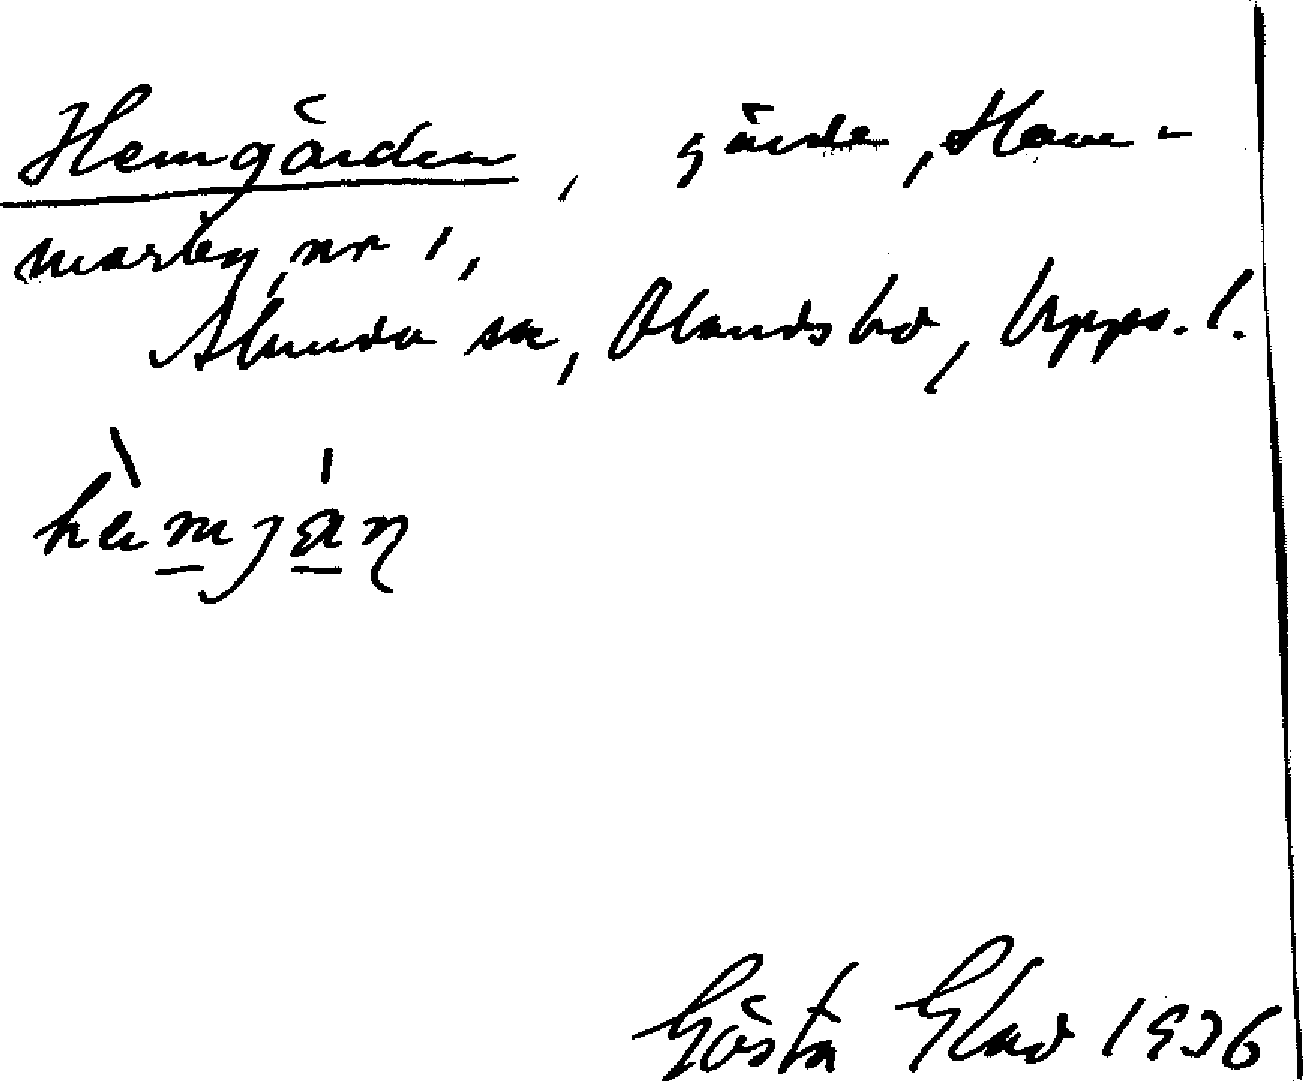 Hemgärden, gärde, Ham-
marby nr 1,
Alunda sn, Olands hd, Upps. l.
hèmjä́ɳ
Gösta Glad 1936